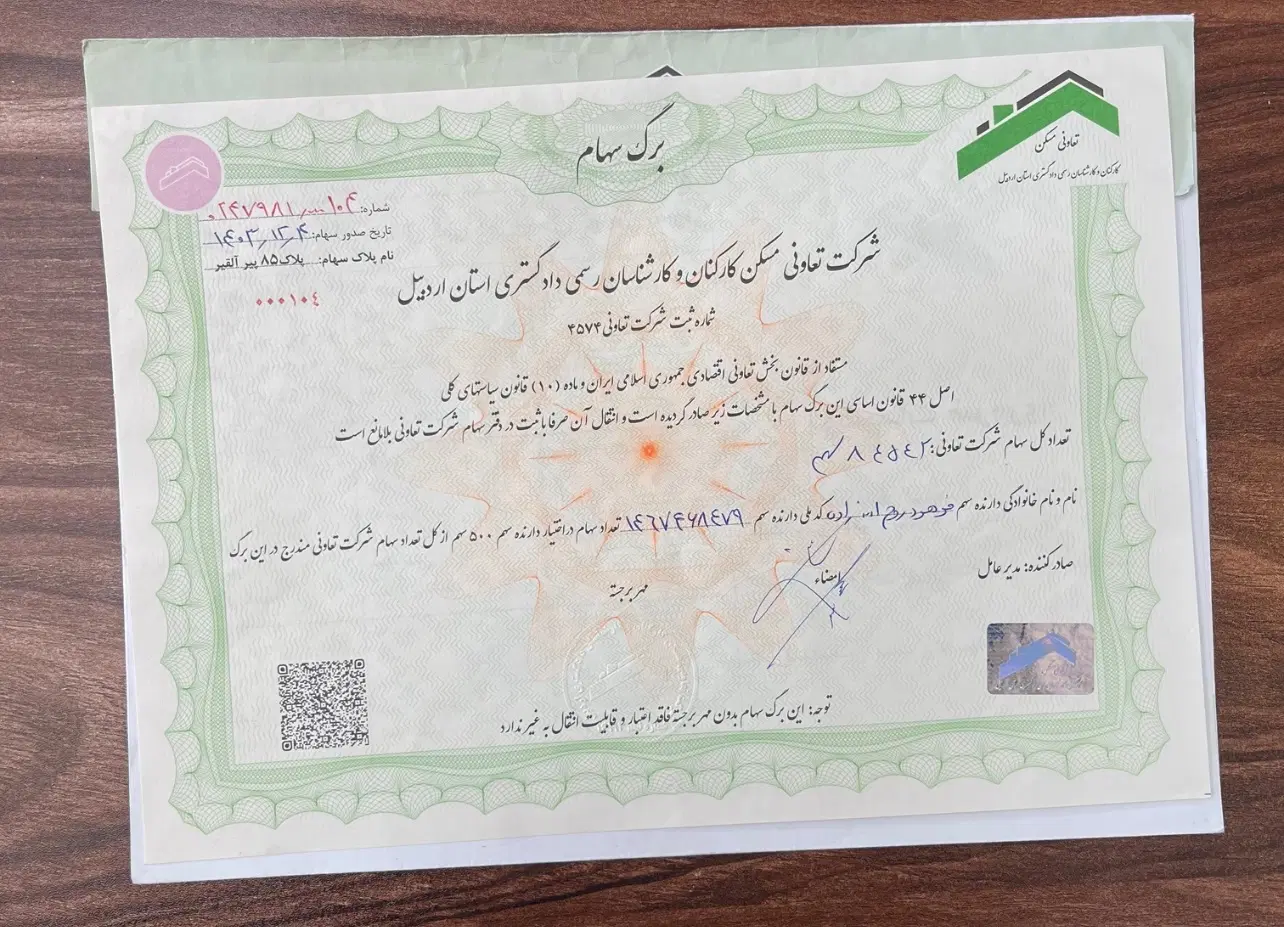 برگ سهام
تعاونی مسکن
کارکنان و کارشناسان رسمی دادگستری استان اردبیل
شماره: ۱۰۴
تاریخ صدور سهام: ۱۴۰۳/۱۲/۴
نام پلاک سهام: پلاک ۸۵ پیر آلقیر
۰۰۰۱۰۴
شرکت تعاونی مسکن کارکنان و کارشناسان رسمی دادگستری استان اردبیل
شماره ثبت شرکت تعاونی ۴۵۷۴
مستفاد از قانون بخش تعاونی اقتصادی جمهوری اسلامی ایران و ماده (۱۰) قانون سیاستهای کلی
اصل ۴۴ قانون اساسی این برگ سهام با مشخصات زیر صادر گردیده است و انتقال آن صرفا با ثبت در دفتر سهام شرکت تعاونی بلامانع است
تعداد کل سهام شرکت تعاونی: سهم
نام و نام خانوادگی دارنده سهم کد ملی دارنده سهم تعداد سهام در اختیار دارنده سهم ۵۰۰ سهم از کل تعداد سهام شرکت تعاونی مندرج در این برگ
صادر کننده: مدیر عامل
امضاء
مهر برجسته
توجه: این برگ سهام بدون مهر برجسته فاقد اعتبار و قابلیت انتقال به غیر ندارد